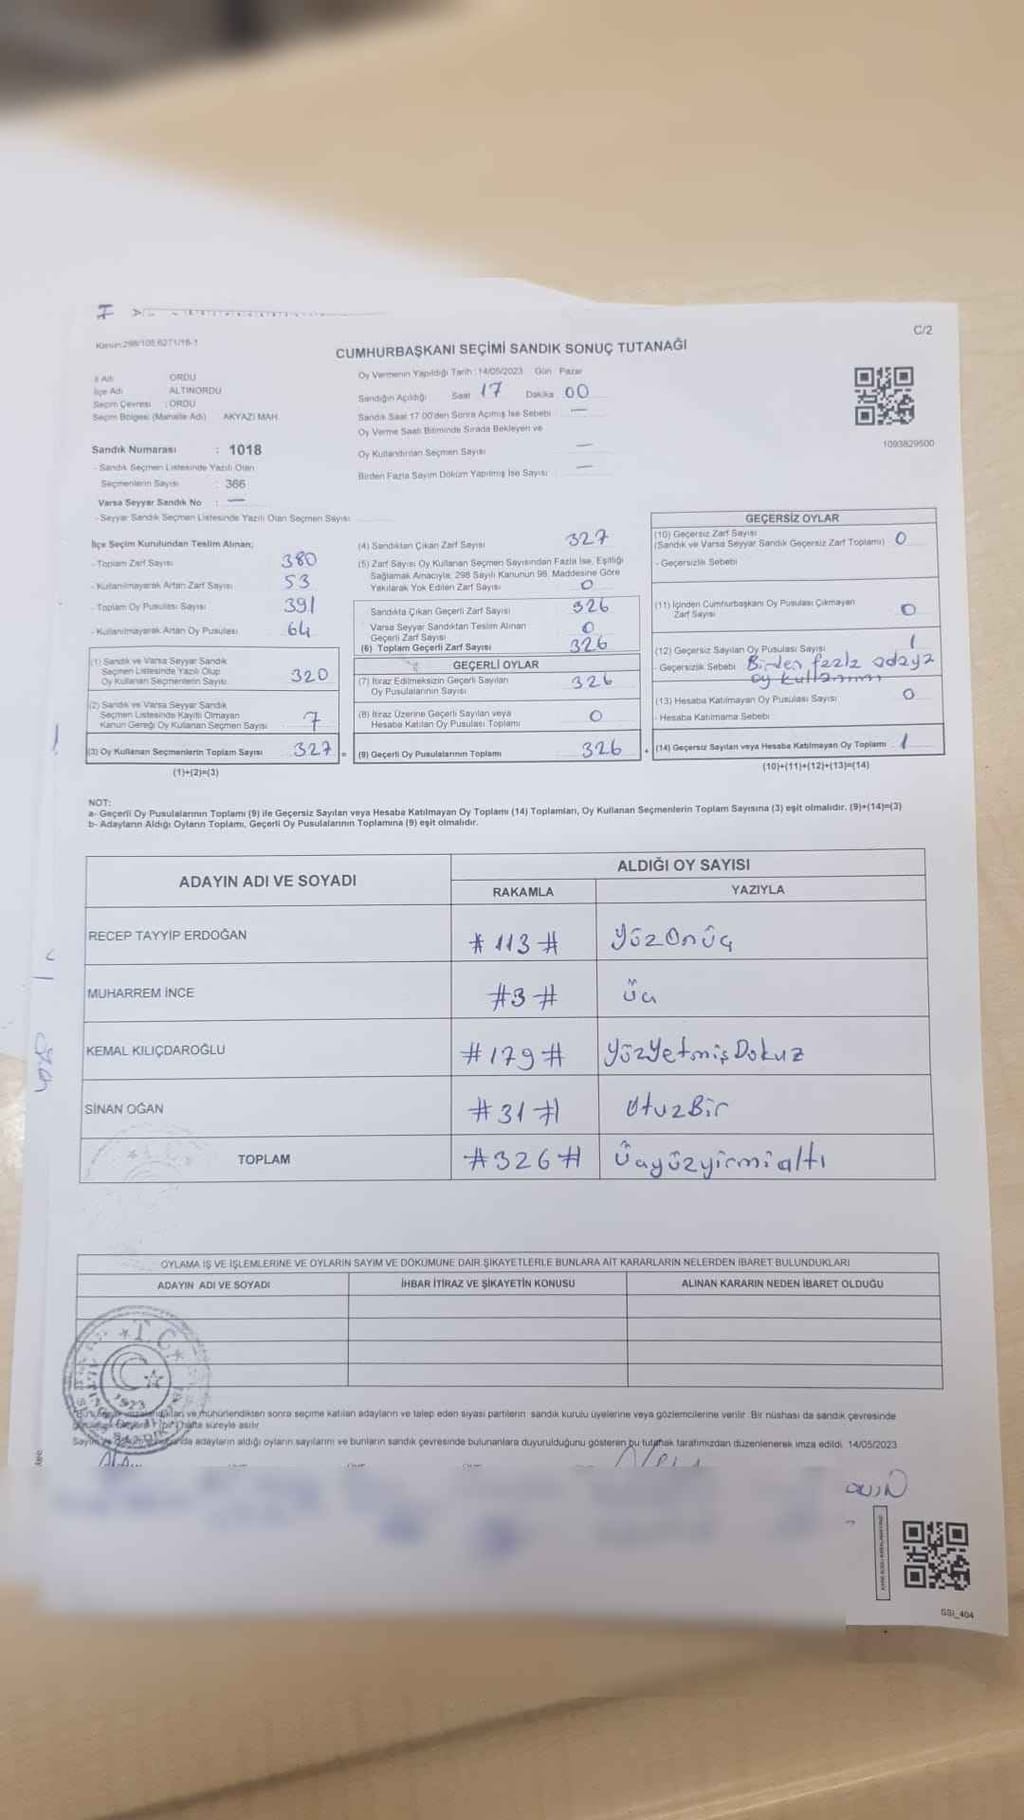 C/2
Kanun:298/105,6271/16-1
CUMHURBAŞKANI SEÇİMİ SANDIK SONUÇ TUTANAĞI
İl Adı : ORDU
İlçe Adı : ALTINORDU
Seçim Çevresi : ORDU
Seçim Bölgesi (Mahalle Adı) : AKYAZI MAH.
Oy Vermenin Yapıldığı Tarih : 14/05/2023 Gün : Pazar
Sandığın Açıldığı Saat 17 Dakika 00
Sandık Saat 17.00'den Sonra Açılmış İse Sebebi —
Oy Verme Saati Bitiminde Sırada Bekleyen ve
Oy Kullandırılan Seçmen Sayısı —
Birden Fazla Sayım Döküm Yapılmış İse Sayısı —
1093829500
Sandık Numarası : 1018
- Sandık Seçmen Listesinde Yazılı Olan
Seçmenlerin Sayısı : 366
Varsa Seyyar Sandık No : —
- Seyyar Sandık Seçmen Listesinde Yazılı Olan Seçmen Sayısı
İlçe Seçim Kurulundan Teslim Alınan;
- Toplam Zarf Sayısı 380
- Kullanılmayarak Artan Zarf Sayısı 53
- Toplam Oy Pusulası Sayısı 391
- Kullanılmayarak Artan Oy Pusulası 64
(1) Sandık ve Varsa Seyyar Sandık
Seçmen Listesinde Yazılı Olup
Oy Kullanan Seçmenlerin Sayısı 320
(2) Sandık ve Varsa Seyyar Sandık
Seçmen Listesinde Kayıtlı Olmayan
Kanun Gereği Oy Kullanan Seçmen Sayısı 7
(3) Oy Kullanan Seçmenlerin Toplam Sayısı 327 =
(1)+(2)=(3)
(4) Sandıktan Çıkan Zarf Sayısı 327
(5) Zarf Sayısı Oy Kullanan Seçmen Sayısından Fazla İse, Eşitliği
Sağlamak Amacıyla; 298 Sayılı Kanunun 98. Maddesine Göre
Yakılarak Yok Edilen Zarf Sayısı 0
Sandıkta Çıkan Geçerli Zarf Sayısı 326
Varsa Seyyar Sandıktan Teslim Alınan
Geçerli Zarf Sayısı 0
(6) Toplam Geçerli Zarf Sayısı 326
GEÇERLİ OYLAR
(7) İtiraz Edilmeksizin Geçerli Sayılan
Oy Pusulalarının Sayısı 326
(8) İtiraz Üzerine Geçerli Sayılan veya
Hesaba Katılan Oy Pusulası Toplamı 0
(9) Geçerli Oy Pusulalarının Toplamı 326 +
GEÇERSİZ OYLAR
(10) Geçersiz Zarf Sayısı
(Sandık ve Varsa Seyyar Sandık Geçersiz Zarf Toplamı) 0
- Geçersizlik Sebebi
(11) İçinden Cumhurbaşkanı Oy Pusulası Çıkmayan
Zarf Sayısı 0
(12) Geçersiz Sayılan Oy Pusulası Sayısı 1
- Geçersizlik Sebebi Birden fazla adaya
oy kullanımı
(13) Hesaba Katılmayan Oy Pusulası Sayısı 0
- Hesaba Katılmama Sebebi
(14) Geçersiz Sayılan veya Hesaba Katılmayan Oy Toplamı 1
(10)+(11)+(12)+(13)=(14)
NOT:
a- Geçerli Oy Pusulalarının Toplamı (9) ile Geçersiz Sayılan veya Hesaba Katılmayan Oy Toplamı (14) Toplamları, Oy Kullanan Seçmenlerin Toplam Sayısına (3) eşit olmalıdır. (9)+(14)=(3)
b- Adayların Aldığı Oyların Toplamı, Geçerli Oy Pusulalarının Toplamına (9) eşit olmalıdır.
ADAYIN ADI VE SOYADI
ALDIĞI OY SAYISI
RAKAMLA YAZIYLA
RECEP TAYYİP ERDOĞAN # 113 # YüzOnüç
MUHARREM İNCE #3# üç
KEMAL KILIÇDAROĞLU #179# YüzYetmişDokuz
SİNAN OĞAN #31# OtuzBir
TOPLAM #326# Üçyüzyirmialtı
OYLAMA İŞ VE İŞLEMLERİNE VE OYLARIN SAYIM VE DÖKÜMÜNE DAİR ŞİKAYETLERLE BUNLARA AİT KARARLARIN NELERDEN İBARET BULUNDUKLARI
ADAYIN ADI VE SOYADI İHBAR İTİRAZ VE ŞİKAYETİN KONUSU ALINAN KARARIN NEDEN İBARET OLDUĞU
T.C.
1923
ve mühürlendikten sonra seçime katılan adayların ve talep eden siyasi partilerin sandık kurulu üyelerine veya gözlemcilerine verilir. Bir nüshası da sandık çevresinde
hafta süreyle asılır.
adayların aldığı oyların sayılarını ve bunların sandık çevresinde bulunanlara duyurulduğunu gösteren bu tutanak tarafımızdan düzenlenerek imza edildi. 14/05/2023
GSI_404